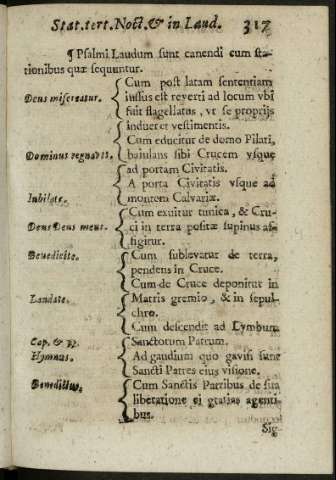 Stat. tert. Noct. & in Laud. 317
¶ Psalmi Laudum sunt canendi cum sta-
tionibus quæ sequuntur.
Cum post latam sententiam
Deus misereatur. iussus est reverti ad locum vbi
fuit flagellatus, vt se proprijs
indueret vestimentis.
Cum educitur de domo Pilati,
Dominus regnavit. baiulans sibi Crucem vsque
ad portam Civitatis.
A porta Civitatis vsque ad
Iubilate. montem Calvariæ.
Cum exuitur tunica, & Cru-
Deus Deus meus. ci in terra positæ supinus af-
figitur.
Benedicite. Cum sublevatur de terra,
pendens in Cruce.
Cum de Cruce deponitur in
Laudate. Matris gremio, & in sepul-
chro.
Cum descendit ad Lymbum
Cap. & Sanctorum Patrum.
Hymnus. Ad gaudium quo gavisi sunt
Sancti Patres eius visione.
Benedictus. Cum Sanctis Patribus de sua
liberatione ei gratias agenti-
bus.
Sig-